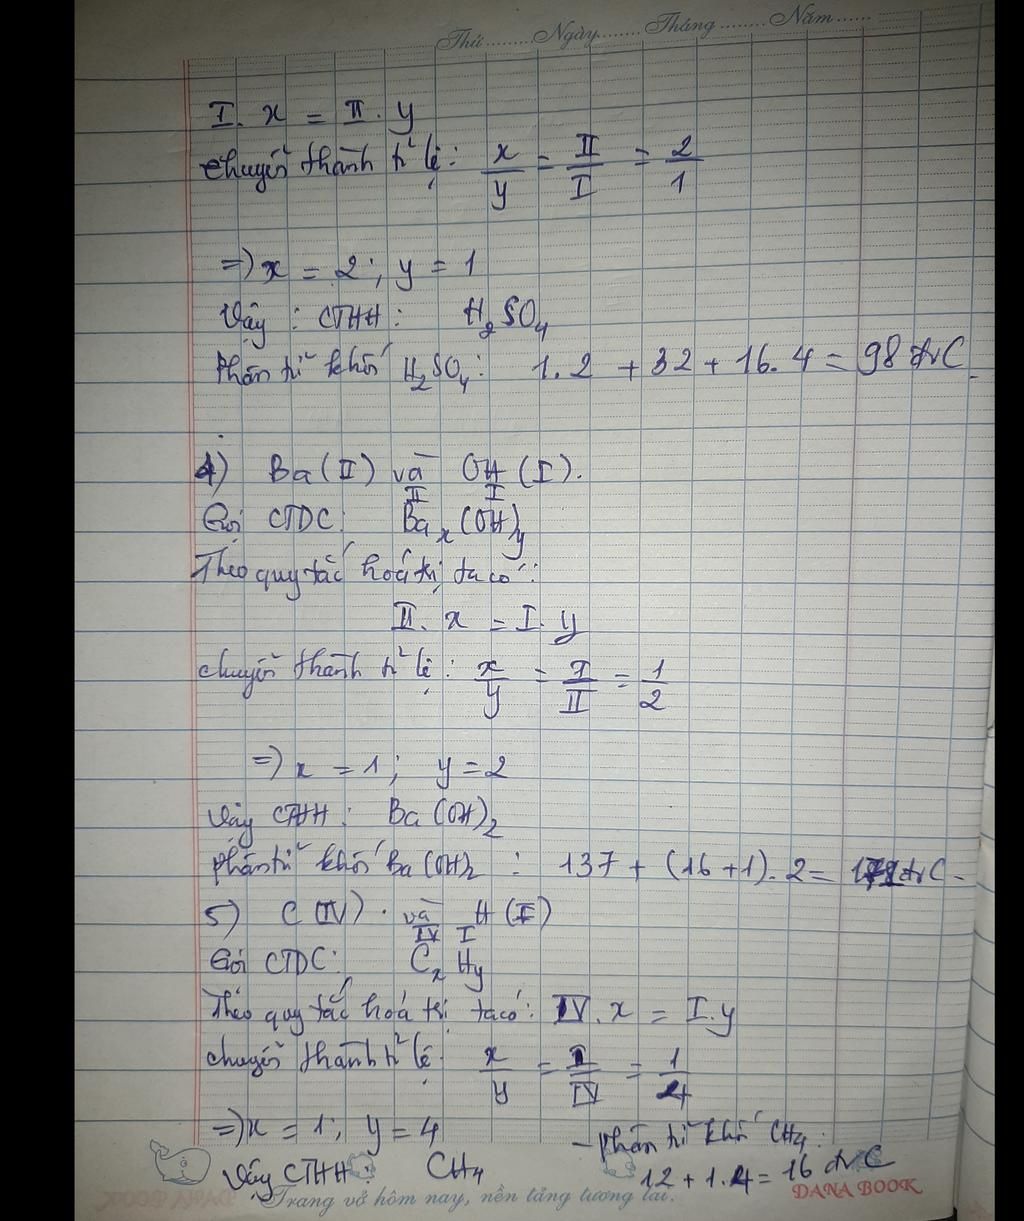 Thứ........Ngày........Tháng........Năm......
I. x = II. y
chuyển thành tỉ lệ: x/y = II/I = 2/1
=) x = 2; y = 1
Vậy: CTHH: H₂SO₄
Phân tử khối H₂SO₄: 1.2 + 32 + 16.4 = 98 đvC
4) Ba (II) và OH (I).
II I
Gọi CTDC: Baₓ(OH)y
Theo quy tắc hoá trị ta có:
II. x = I. y
chuyển thành tỉ lệ: x/y = I/II = 1/2
=) x = 1; y = 2
Vậy CTHH: Ba(OH)₂
phân tử khối Ba(OH)₂: 137 + (16+1).2 = đvC
5) C (IV). và H (I)
IV I
Gọi CTDC: CₓHy
Theo quy tắc hoá trị ta có: IV. x = I.y
chuyển thành tỉ lệ x/y = I/IV = 1/4
=) x = 1; y = 4
- Phân tử khối CH₄:
Vậy CTHH: CH₄
12 + 1.4 = 16 đvC
Trang vở hôm nay, nền tảng tương lai.
DANA BOOK